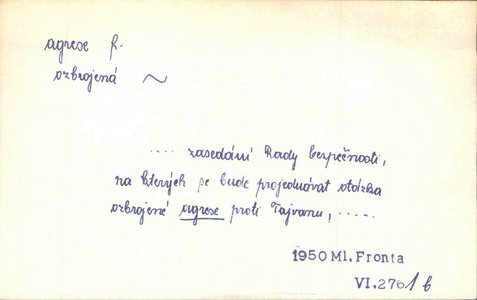 agrese f.
ozbrojená ~
.... zasedání Rady bezpečnosti,
na kterých se bude projednávat otázka
ozbrojené agrese proti Tajvanu, .....
1950 Ml. Fronta
VI.2761 b